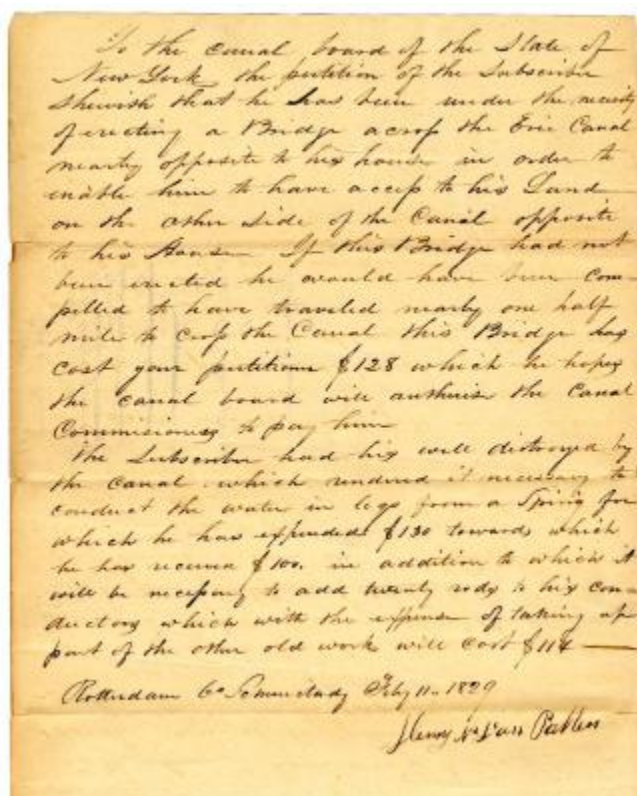 To the canal board of the State of
New York the petition of the Subscriber
Sheweth that he has been under the necessity
of erecting a Bridge across the Erie Canal
nearly opposite to his house in order to
enable him to have access to his Land
on the other side of the Canal opposite
to his House If this Bridge had not
been erected he would have been com-
pelled to have traveled nearly one half
mile to cross the Canal this Bridge has
cost your petitioner $128 which he hopes
the canal board will authorise the Canal
Commisioners to pay him
The Subscriber had his well distroyed by
the Canal which rendered it necessary to
conduct the water in logs from a Spring for
which he has expended $130 towards which
he has received $100. in addition to which it
will be necessary to add twenty rods to his con-
ductors which with the expense of taking up
part of the other old work will cost $114
Rotterdam Co Schenectady Feby 11. 1829
Henry Van Patten